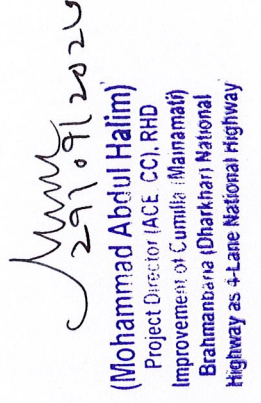 29/09/2020
(Mohammad Abdul Halim)
Project Director (ACE, CC), RHD
Improvement of Cumilla (Mainamati)
Brahmanbaria (Dharkhar) National
Highway as 4-Lane National Highway